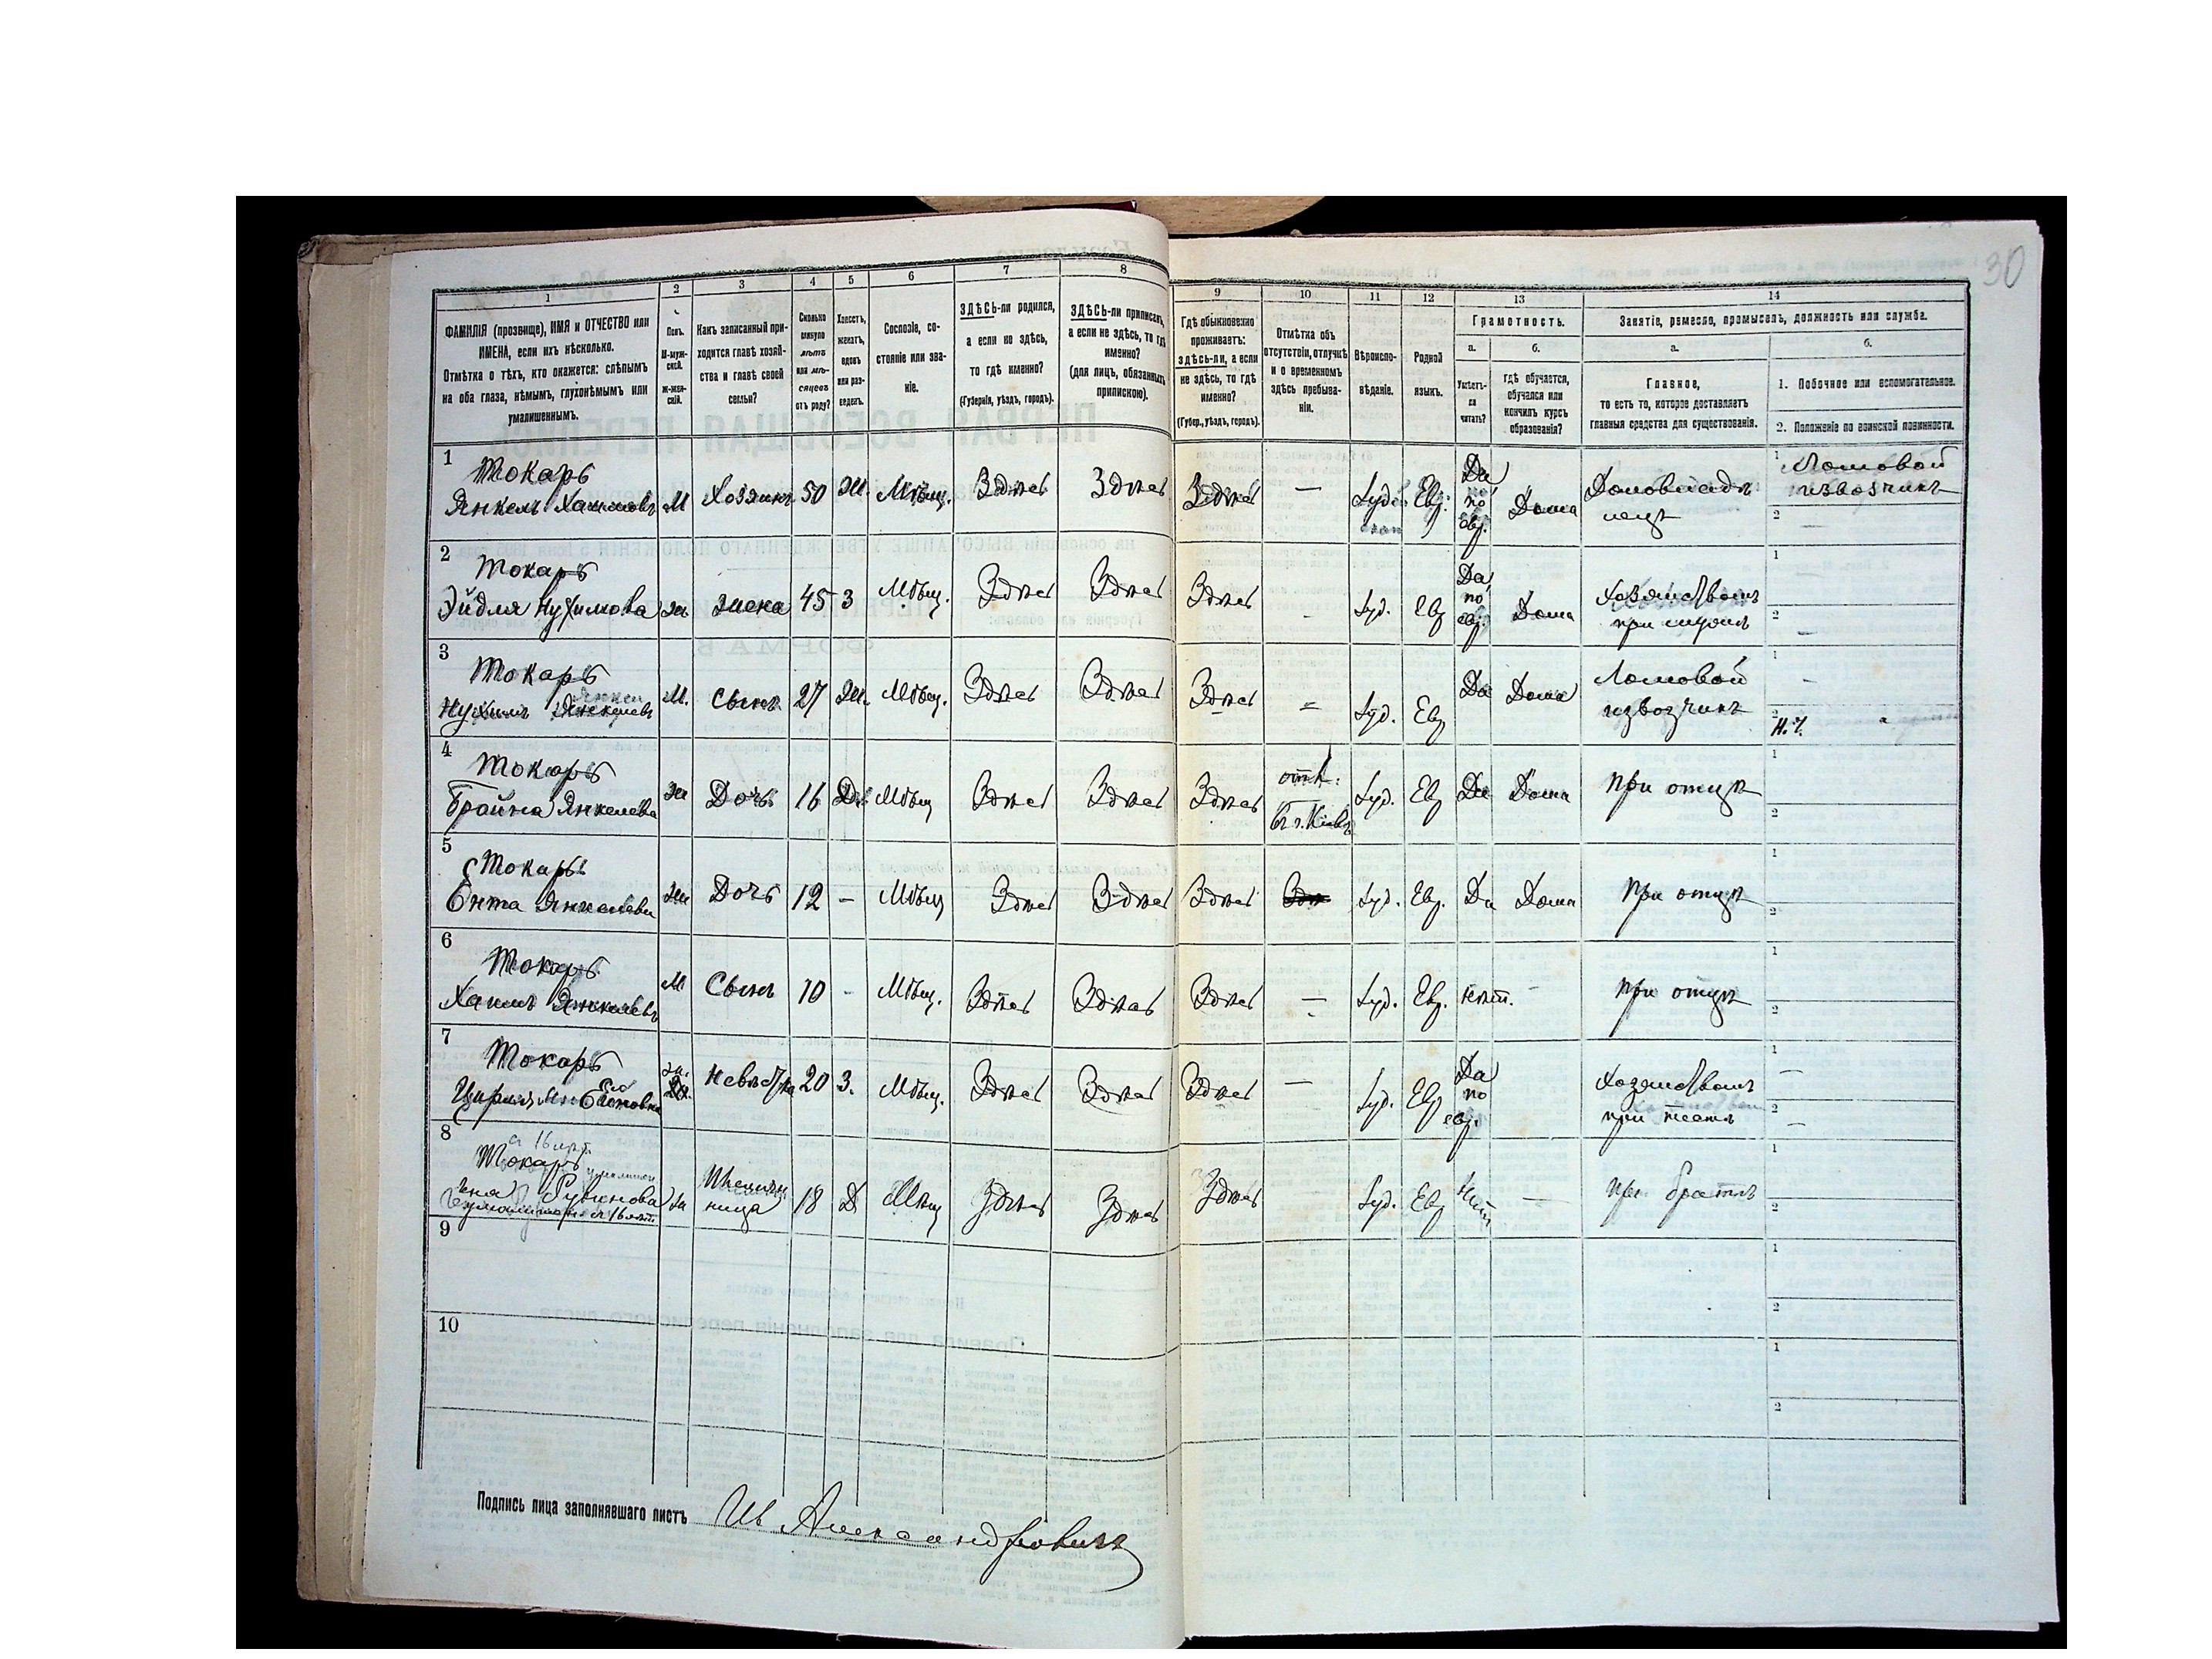 30
1
2
3
4
5
6
7
8
9
10
11
12
13
14
ФАМИЛІЯ (прозвище), ИМЯ и ОТЧЕСТВО или
ИМЕНА, если ихъ нѣсколько.
Отмѣтка о тѣхъ, кто окажется: слѣпымъ
на оба глаза, нѣмымъ, глухонѣмымъ или
умалишеннымъ.
Полъ.
М-муж-
ской.
ж-жен-
скій.
Какъ записанный при-
ходится главѣ хозяй-
ства и главѣ своей
семьи?
Сколько
минуло
лѣтъ
или мѣ-
сяцевъ
отъ роду?
Холостъ,
женатъ,
вдовъ
или раз-
веденъ.
Сословіе, со-
стояніе или зва-
ніе.
ЗДѢСЬ-ли родился,
а если не здѣсь,
то гдѣ именно?
(Губернія, уѣздъ, городъ).
ЗДѢСЬ-ли приписанъ,
а если не здѣсь, то гдѣ
именно?
(для лицъ, обязанныхъ
припискою).
Гдѣ обыкновенно
проживаетъ:
здѣсь-ли, а если
не здѣсь, то гдѣ
именно?
(Губер., уѣздъ, городъ).
Отмѣтка объ
отсутствіи, отлучкѣ
и о временномъ
здѣсь пребыва-
ніи.
Вѣроиспо-
вѣданіе.
Родной
языкъ.
Грамотность.
а.
Умѣетъ-
ли
читать?
б.
гдѣ обучается,
обучался или
кончилъ курсъ
образованія?
Занятіе, ремесло, промыселъ, должность или служба.
а.
Главное,
то есть то, которое доставляетъ
главныя средства для существованія.
б.
1. Побочное или вспомогательное.
2. Положеніе по воинской повинности.
1
Токарь
Янкель Хаимовъ М Хозяинъ 50 Ж. Мѣщ. Здѣсь Здѣсь Здѣсь — Іудей Евр. Да по евр. Дома Домовладѣ
лецъ
1 Ломовой
извозчикъ
2 —
2
Токарь
Эйдля Нухимова ж жена 45 З Мѣщ. Здѣсь Здѣсь Здѣсь - Іуд. Евр Да, по евр. Дома Хозяйствомъ
при мужѣ
1
2 —
3
Токарь
Нухимъ Янкелевъ М. Сынъ 27 Ж. Мѣщ. Здѣсь Здѣсь Здѣсь = Іуд. Евр Да Дома Ломовой
извозчикъ
1 -
2 Н.Ч.
4
Токарь
Брайна Янкелева ж Дочь 16 Дѣв. Мѣщ Здѣсь Здѣсь Здѣсь
въ г. Кіевѣ Іуд. Евр Да Дома При отцѣ
1
2
5
Токарь
Ента Янкелева ж Дочь 12 — Мѣщ Здѣсь Здѣсь Здѣсь Іуд. Евр. Да Дома При отцѣ
1
2
6
Токарь
Хаимъ Янкелевъ М Сынъ 10 - Мѣщ. Здѣсь Здѣсь Здѣсь — Іуд. Евр. нѣт. - При отцѣ
1
2
7
Токарь
ж. Невѣстка 20 З. Мѣщ. Здѣсь Здѣсь Здѣсь — Іуд. Евр Да по евр. Хозяйствомъ
при
1 —
2 —
8
Токарь
Рувинова ж 18 Д Мѣщ Здѣсь Здѣсь Здѣсь Іуд. Евр Нѣт — При братѣ
1
2
9
1
2
10
1
2
Подпись лица заполнявшаго листъ Ив Александровичъ